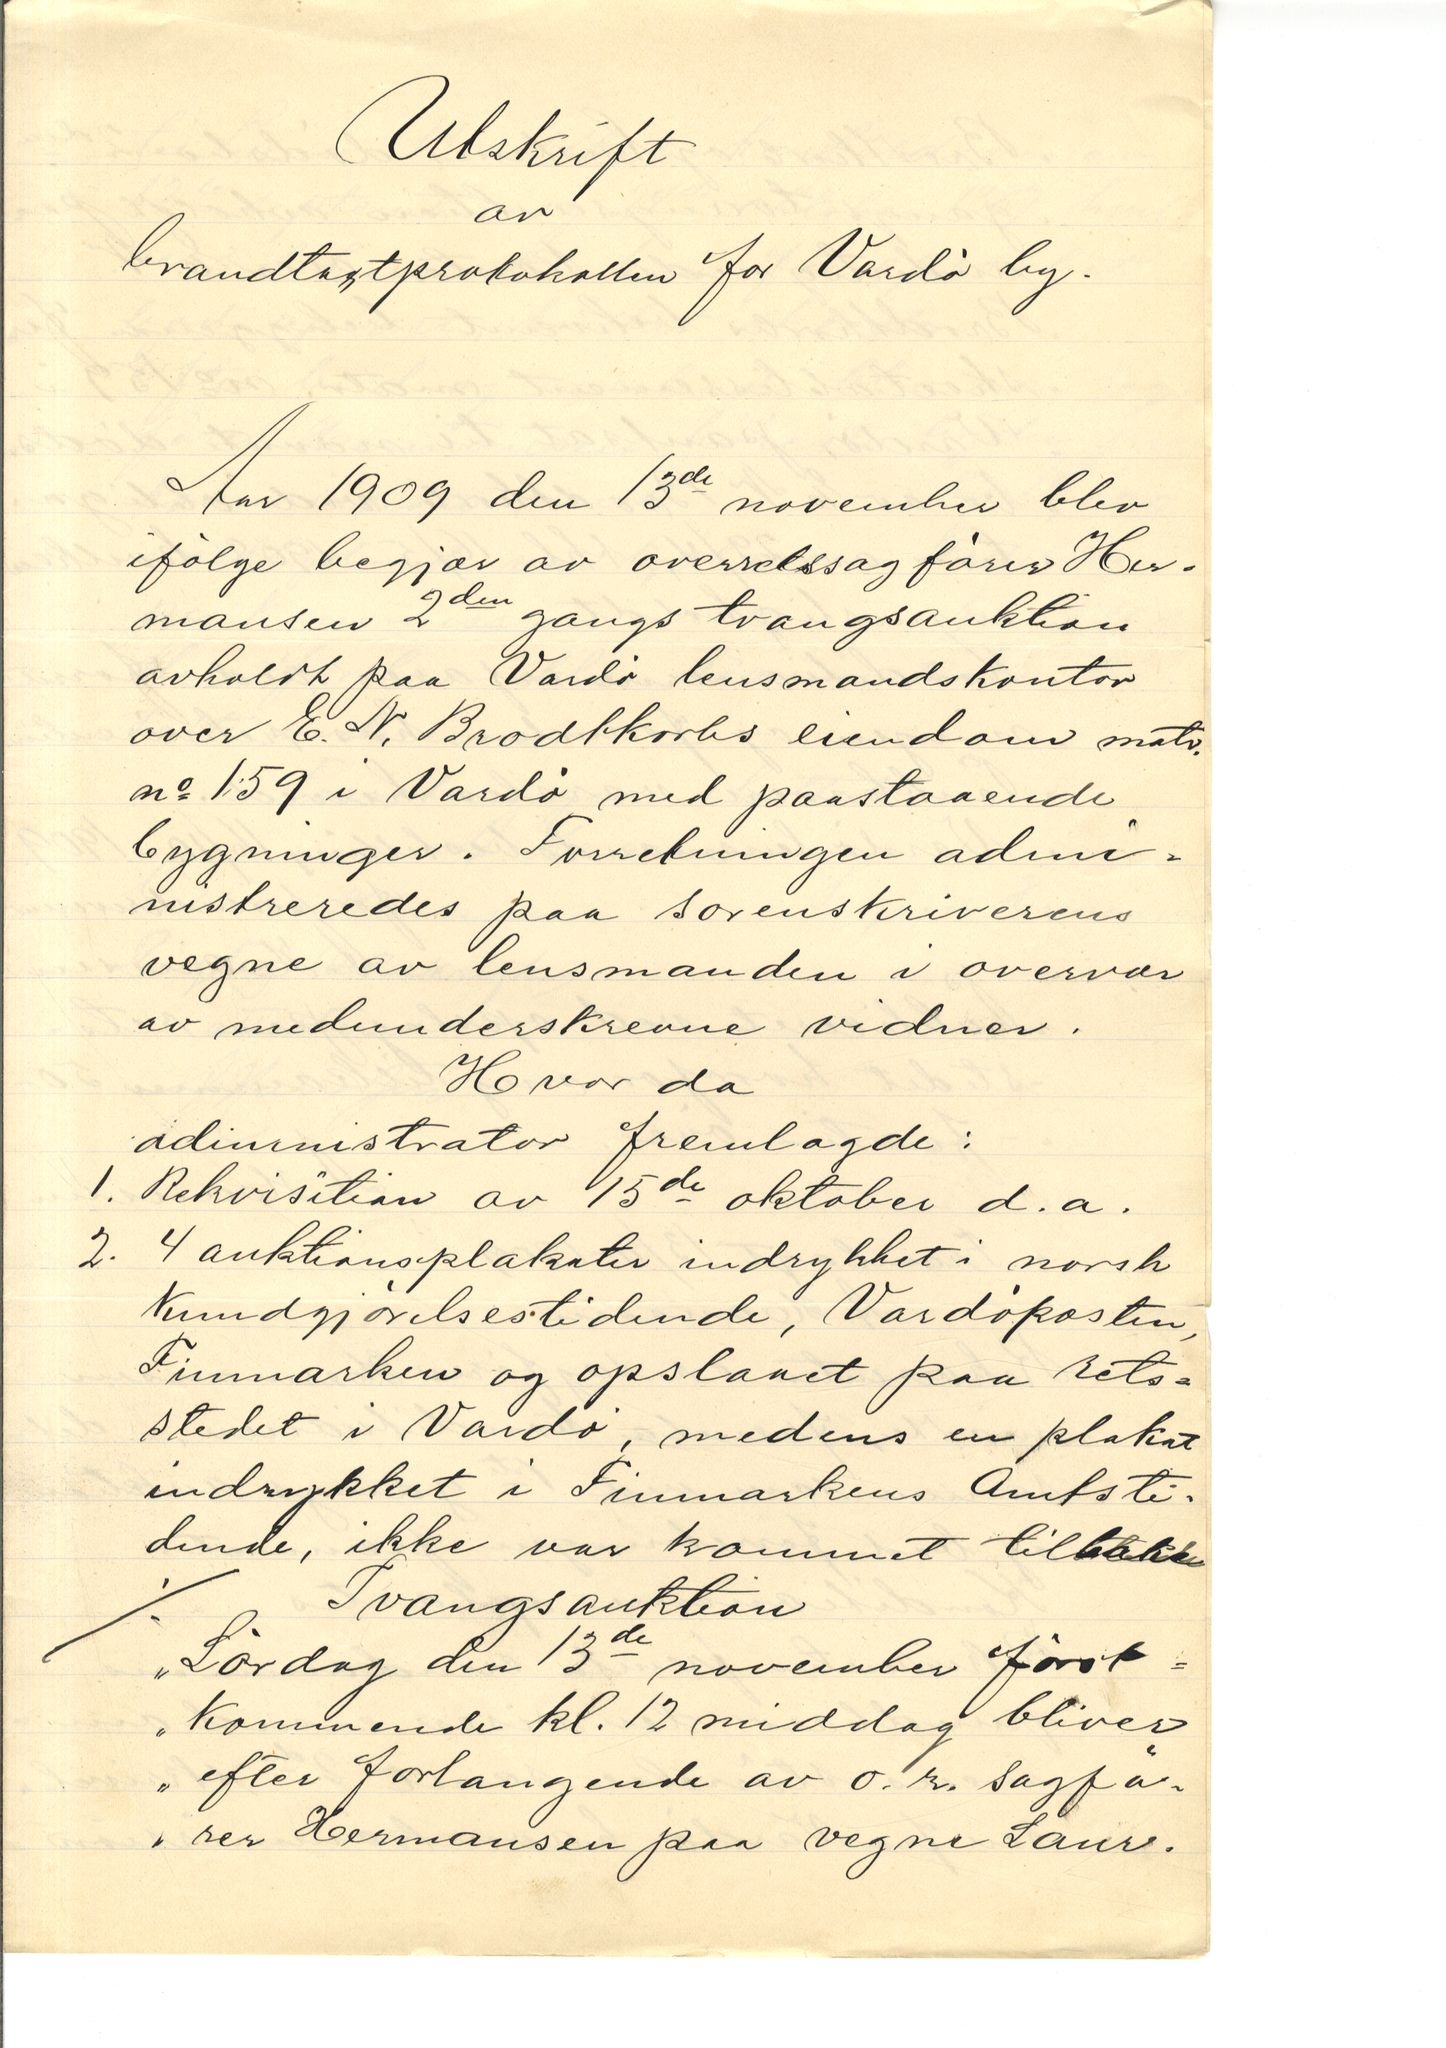 Utskrift
av
brandtagtprotokollen for Vardö by.
Aar 1909 den 13de november blev
ifölge begjær av overretssagförer Her-
mansen 2den gangs tvangsauktion
avholdt paa Vardö lensmandskontor
over E. N. Brodtkorbs eiendom matr.
no 159 i Vardö med paastaaende
bygninger. Forretningen admi-
nistreredes paa sorenskriverens
vegne av lensmanden i overvær
av medunderskrevne vidner.
Hvor da
administrator fremlagde:
1. Rekvisition av 15de oktober d.a.
2. 4 auktionsplakater indrykket i norsk
Kundgjörelsestidende, Vardöposten,
Finmarken og opslaaet paa rets-
stedet i Vardö, medens en plakat
indrykket i Finmarkens Amtsti-
dende, ikke var kommet tilbake
./. Tvangsauktion
"Lördag den 13de november först-
"kommende kl. 12 middag bliver
"efter forlangende av o.r. sagfö-
"rer Hermansen paa vegne Laur.